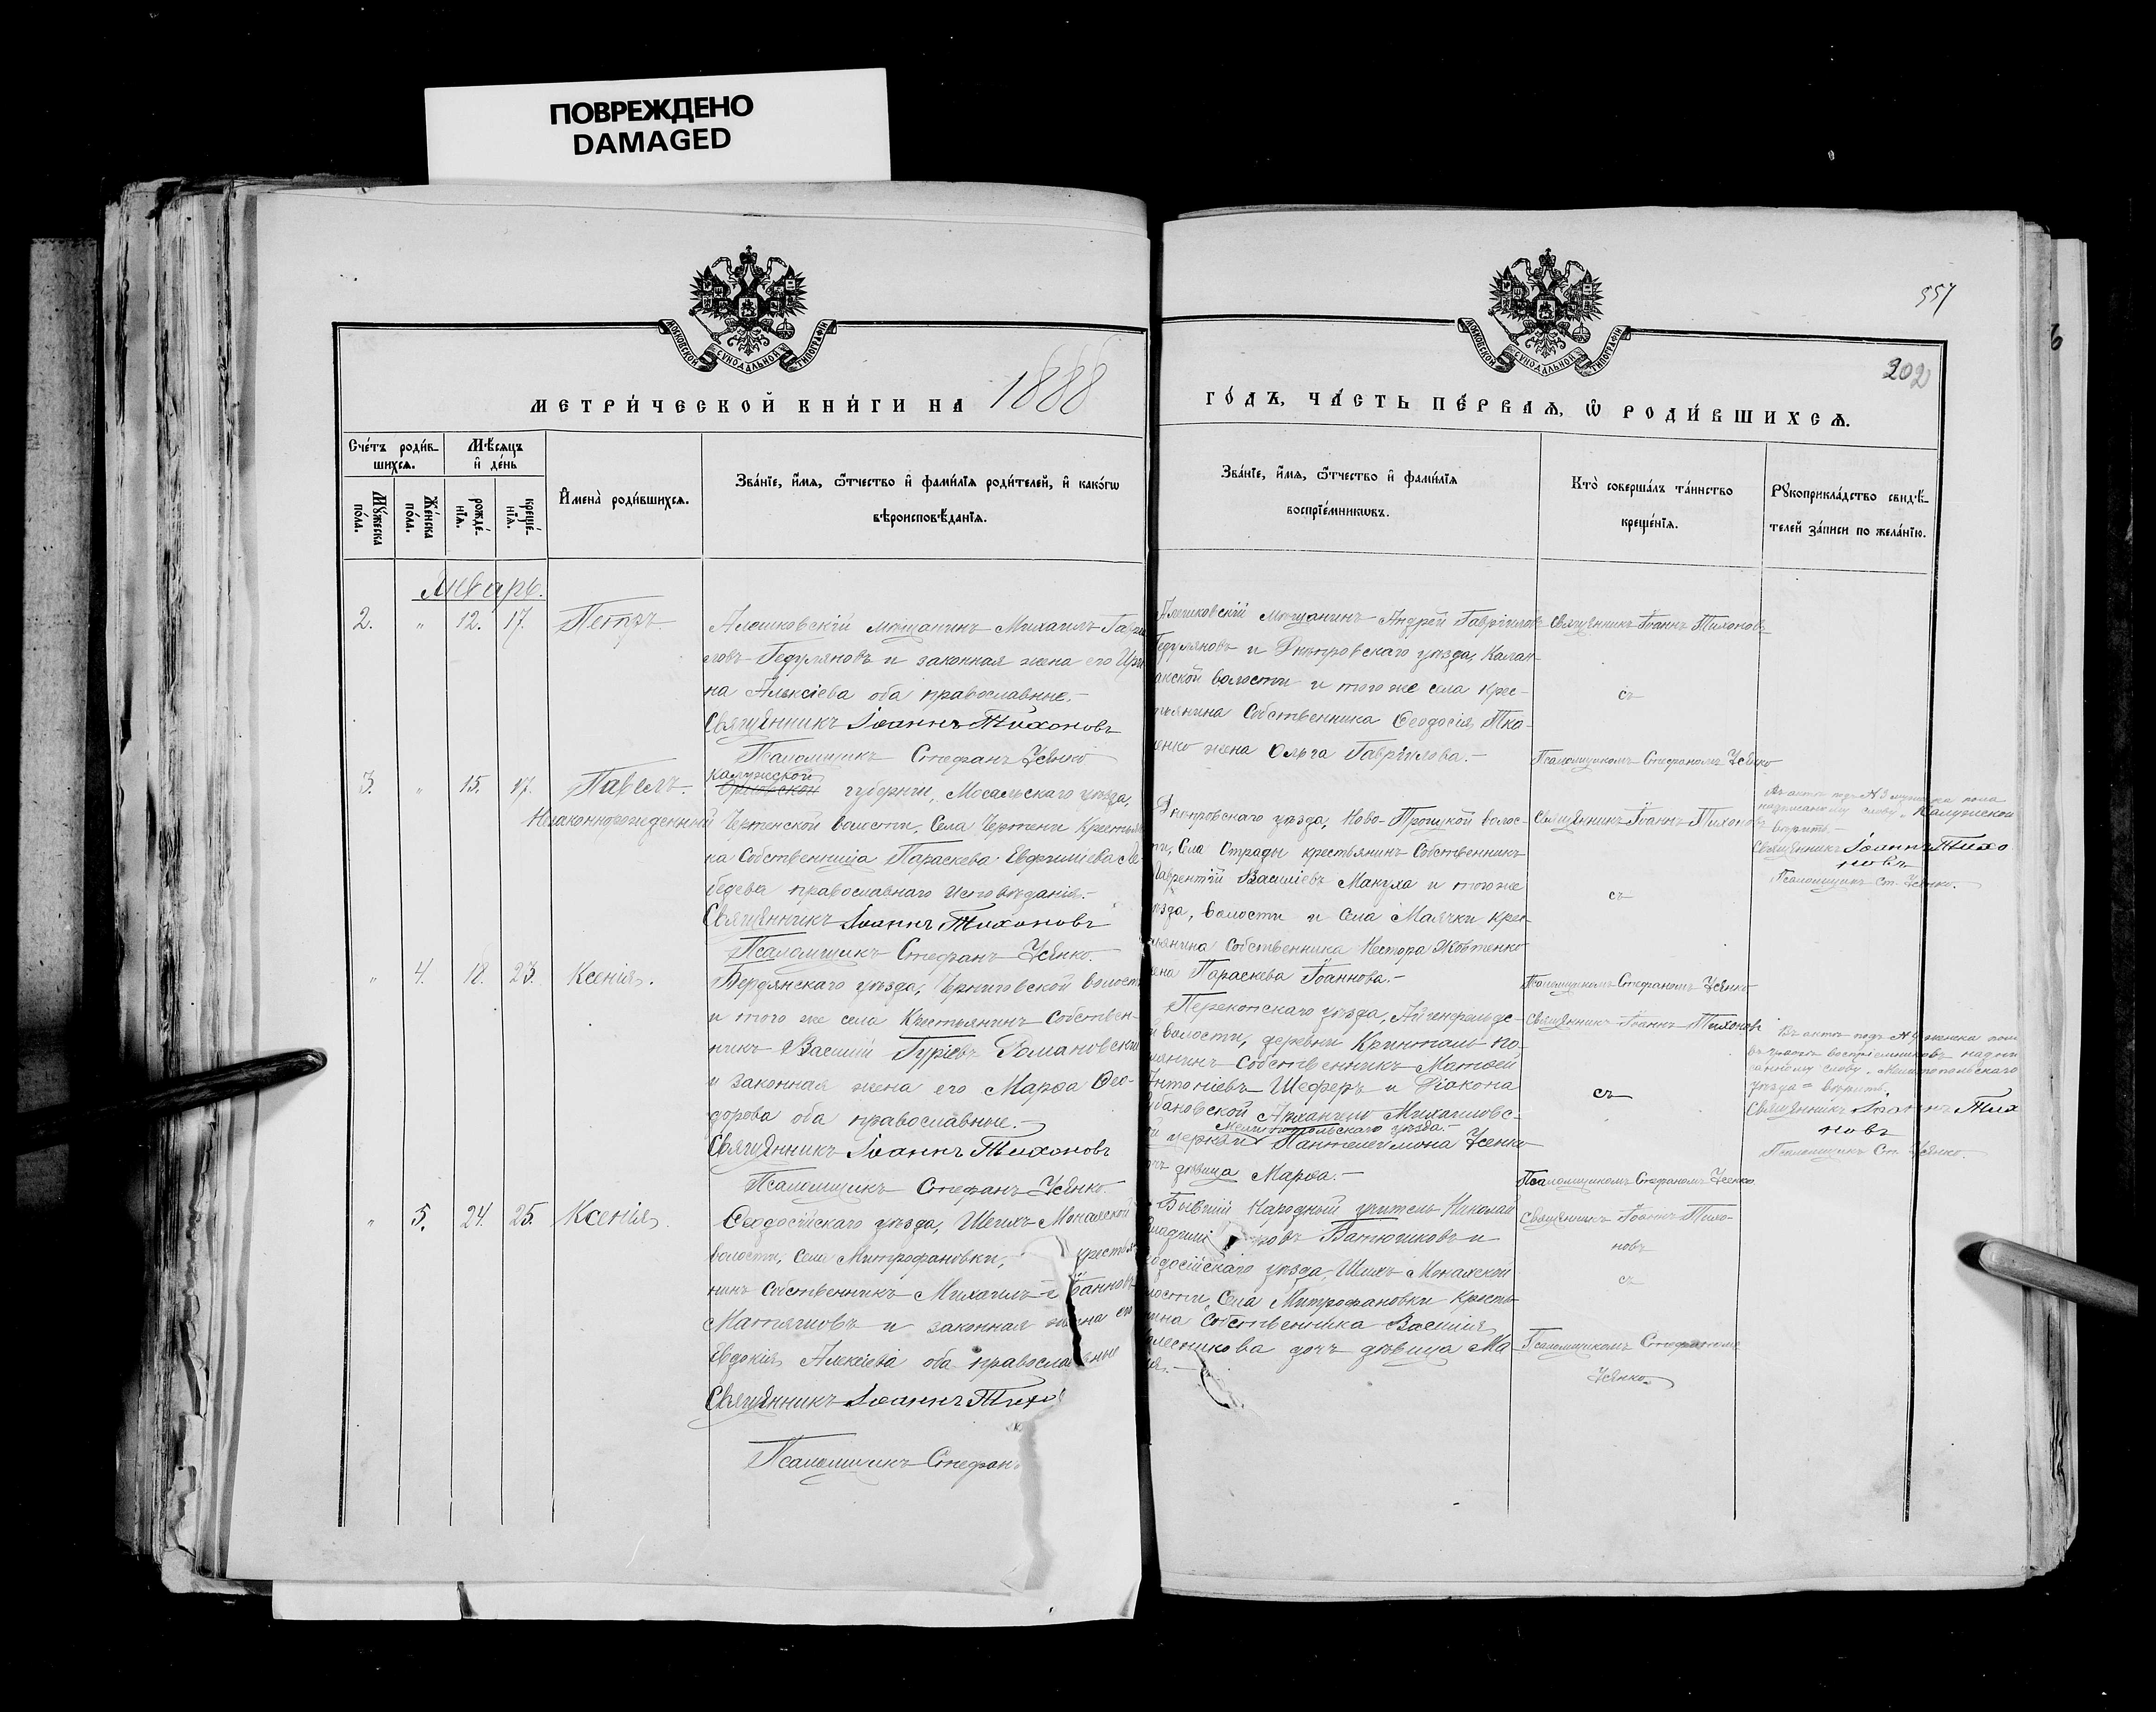 ПОВРЕЖДЕНО
DAMAGED
557
202
6
МОСКОВСКОЙ СѴНОДАЛЬНОЙ ТИПОГРАФІИ
МОСКОВСКОЙ СѴНОДАЛЬНОЙ ТИПОГРАФІИ
МЕТРИ́ЧЕСКОЙ КНИ́ГИ НА 1888
ГО́ДЪ, ЧА́СТЬ ПЕ́РВАѦ, Ѽ РОДИ́ВШИХСѦ.
Сче́тъ роди́в-
шихсѧ.
Мꙋ́жеска
по́ла.
Же́нска
по́ла.
Мѣ́сѧцъ
и҆ де́нь
рожде́-
нїѧ.
креще́-
нїѧ.
И҆мена̀ роди́вшихсѧ.
Зва́нїе, и҆́мѧ, ѻ҆́тчество и҆ фами́лїѧ роди́телей, и҆ како́гѡ
вѣроисповѣ́данїѧ.
Зва́нїе, и҆́мѧ, ѻ҆́тчество и҆ фами́лїѧ
воспрїе́мникѡвъ.
Кто̀ соверша́лъ та́инство
креще́нїѧ.
Рꙋкоприкла́дство свидѣ́-
телей за́писи по жела́нїю.
Январь.
2. " 12. 17. Петръ
Алешковскій мѣщанинъ Михаилъ Гаври
ловъ Гедуляновъ и законная жена его Ири
на Алексіева оба православные.-
Священникъ Іоаннъ Тихоновъ
Псаломщикъ Стефанъ Усенко
Алешковскій мѣщанинъ Андрей Гавріиловъ
Гедуляновъ и Днѣпровскаго уѣзда, Калан-
акской волости и того же села крес-
тьянина Собственника Ѳеодосія Тка-
ченко жена Ольга Гавріилова.-
Священникъ Іоаннъ Тихоновъ
съ
Псаломщикомъ Стефаномъ Усенко
3. " 15. 17. Павелъ.
Незаконнорожденный
Калужской
Орловской губерніи, Мосальскаго уѣзда,
Чертенской волости, Села Чертени Крестьян
ка Собственница Параскева Евфиміева Ле-
бедева православнаго исповѣданія.-
Священникъ Іоаннъ Тихоновъ
Псаломщикъ Стефанъ Усенко.
Днѣпровскаго уѣзда, Ново-Троицкой волос-
ти, Села Отрады крестьянинъ Собственникъ
Лаврентій Василіевъ Макуха и того же
уѣзда, волости и Села Маячки крес-
тьянина Собственника Нестора Жовтенко
жена Параскева Іоаннова.-
Священникъ Іоаннъ Тихоновъ
съ
Псаломщикомъ Стефаномъ Усенко
Въ актѣ подъ № 3 мужеска пола
надписанному слову "Калужской
вѣрить.-
Священникъ Іоаннъ Тихо
новъ
Псаломщикъ Ст. Усенко.
" 4. 18. 23. Ксенія.
Бердянскаго уѣзда, Черниговской волости
и того же села Крестьянинъ Собствен-
никъ Василій Гуріевъ Романовскій
и законная жена его Марѳа Ѳео-
дорова оба православные.-
Священникъ Іоаннъ Тихоновъ
Псаломщикъ Стефанъ Усенко.
Перекопскаго уѣзда, Айгенфельдс-
й волости, деревни Кринталь по-
селянинъ Собственникъ Матѳей
Антоніевъ Шеферъ и Діакона
Архангело Михаиловс-
Мелитопольскаго уѣзда.-
й церкви Пантелеимона Усенко
дочь дѣвица Марѳа.-
Священникъ Іоаннъ Тихоновъ
съ
Псаломщикомъ Стефаномъ Усенко
Въ актѣ подъ № 4 женска пола
въ графѣ воспріемниковъ надпи
санному слову "Мелитопольскаго
уѣзда" вѣрить.
Священникъ Іоаннъ Тихо
новъ
Псаломщикъ Ст. Усенко.
" 5. 24. 25. Ксенія.
Ѳеодосійскаго уѣзда, Шеихъ-Монахской
волости, села Митрофановки, крестья
нинъ Собственникъ Михаилъ Іоанновъ
Матяшовъ и законная жена его
Евдокія Алексіева оба православные
Священникъ Іоаннъ Тихо
Псаломщикъ Стефан
Бывшій Народный учитель Николай
Владимі ровъ Батюшковъ и
Ѳеодосійскаго уѣзда, Шеихъ-Монахской
волости, Села Митрофановки Кресть-
янина Собственника Василія
Колесникова дочь дѣвица Ма-
Священникъ Іоаннъ Тихо-
новъ
съ
Псаломщикомъ Стефаномъ
Усенко.